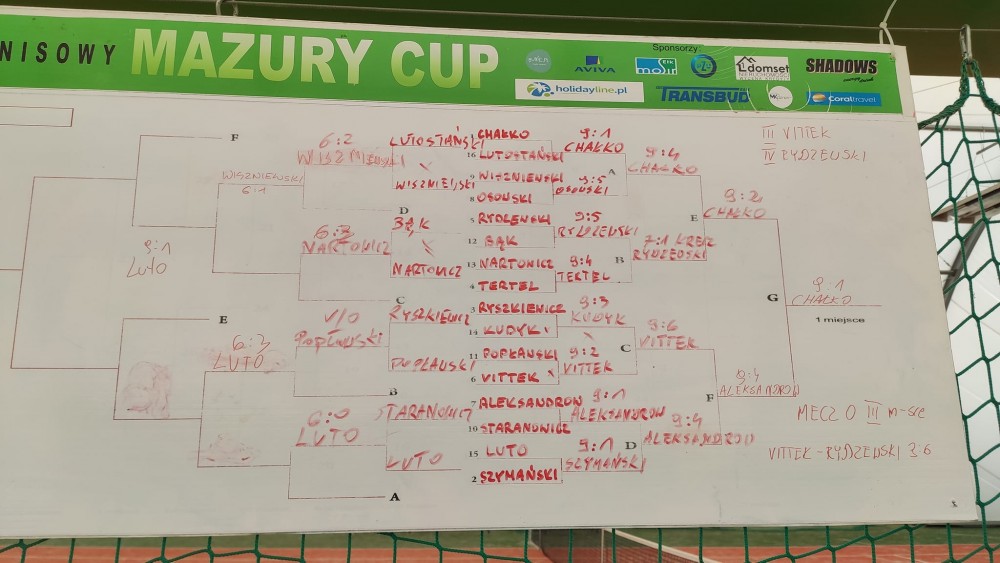 NISOWY MAZURY CUP
Sponsorzy:
AVIVA
domset
SHADOWS
holidayline.pl
TRANSBUD
Coraltravel
F
WISZNIEWSKI
6:1
9:1
LUTO
E
6:3
LUTO
6:2
D
6:3
NARTOWICZ
C
V/O
POPŁAWSKI
B
6:0
LUTO
A
LUTOSTAŃSKI
BĄK
NARTOWICZ
RYSZKIEWICZ
STARANOWICZ
LUTO
CHAŁKO
16 LUTOSTAŃSKI
9 WISZNIENSKI
8 OSOWSKI
5
12 BĄK
13 NARTONICZ
4 TERTEL
3 RYSZKIENICZ
14 KUDYK
11 POPŁANSKI
6 VITTEK
7 ALEKSANDRON
10 STARANONICZ
15 LUTO
2 SZYMAŃSKI
9:1
CHAŁKO
9:5
OSOWSKI
9:5
RYDZEWSKI
9:4
TERTEL
9:3
KUDYK
9:2
VITTEK
9:1
ALEKSANDRON
9:1
SZYMAŃSKI
A
9:4
CHAŁKO
B
7:1 KREJZ
RYDZEWSKI
C
9:6
VITTEK
D
9:4
ALEKSANDROW
E
9:2
CHAŁKO
F
9:4
ALEKSANDROW
G
9:1
CHAŁKO
1 miejsce
III VITTEK
IV RYDZEWSKI
MECZ O III m-sce
VITTEK - RYDZEWSKI 3:6